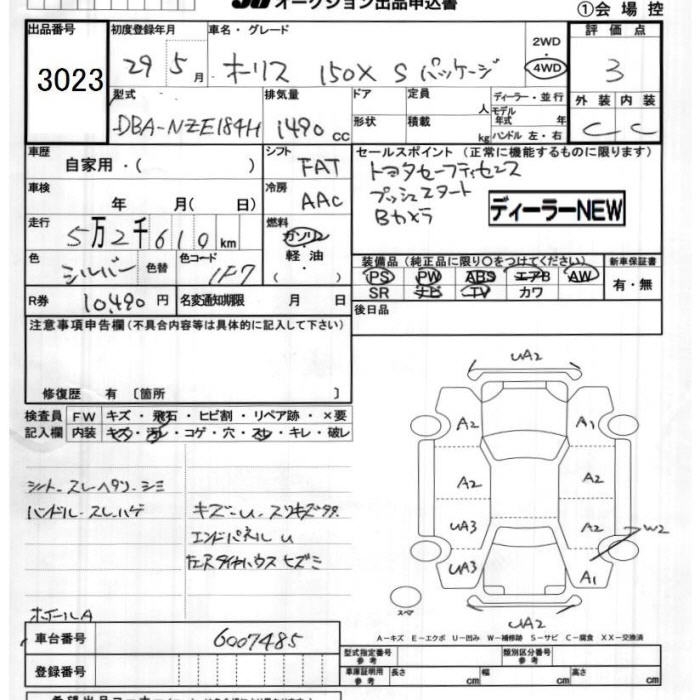 オークション出品申込書
①会場控
出品番号
3023
初度登録年月
29 5月
車名・グレード
オーリス 150X Sパッケージ
2WD
4WD
評価点
3
型式
DBA-NZE184H
排気量
1490 cc
ドア
形状
定員 人
積載 kg
ディーラー・並行
モデル年式 年
ハンドル 左・右
外装 内装
C C
車歴
自家用・( )
シフト
FAT
セールスポイント(正常に機能するものに限ります)
トヨタセーフティセンス
プッシュスタート
Bカメラ
ディーラーNEW
車検
年 月( 日)
冷房
AAC
走行
5万2千610km
燃料
ガソリン
軽油
( )
色
シルバー
色替
色コード
1F7
装備品(純正品に限り○をつけてください)
PS PW ABS エアB AW
SR ナビ TV カワ
新車保証書
有・無
R券 10,490円
名変通知期限 月 日
後日品
注意事項申告欄(不具合内容等は具体的に記入して下さい)
修復歴 有〔箇所 〕
検査員記入欄
FW キズ・飛石・ヒビ割・リペア跡・×要
内装 キズ・汚レ・コゲ・穴・スレ・キレ・破レ
シート・スレヘタリ・シミ
ハンドル・スレハゲ
キズ・U・スリキズ多々
エンドパネルU
左スタイヤハウスヒズミ
ホイールA
UA2
A2 A1
A2 A2
UA3 A2 W2
UA3 A1
スペア
UA2
A-キズ E-エクボ U-凹み W-補修跡 S-サビ C-腐食 XX-交換済
車台番号
6007485
登録番号
型式指定番号 参考
類別区分番号 参考
車庫証明用 参考 長さ cm 幅 cm 高さ cm